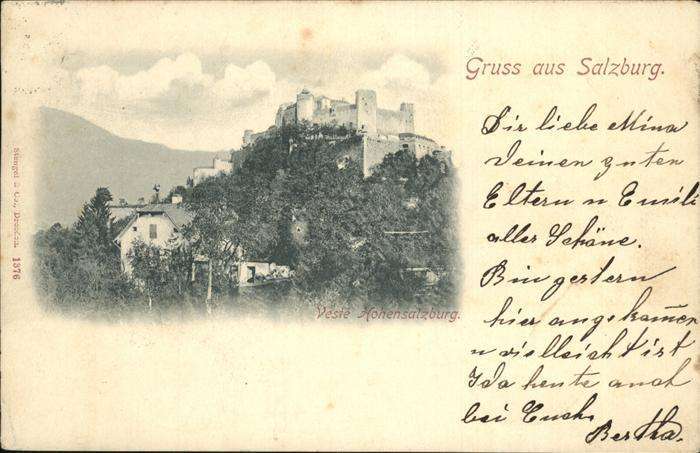 Gruss aus Salzburg.
Dir liebe Mina
deinen guten
Eltern u Emili
alles Schöne.
Bin gestern
hier angekom̅en
u vielleicht ist
Ida heute auch
bei Euch.
Bertha.
Veste Hohensalzburg.
Stengel & Co., Dresden. 1376